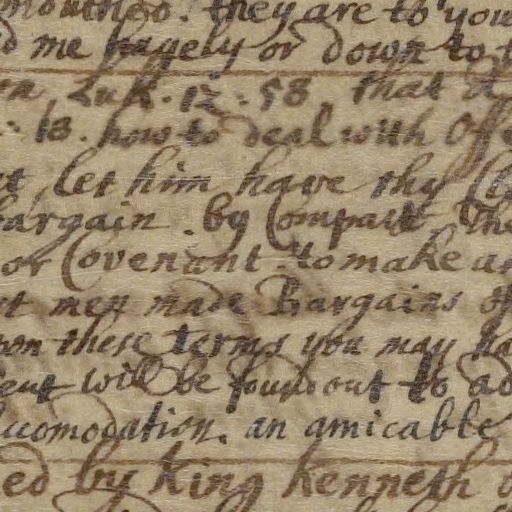 they are to you
me hugely or down to
Luk. 12. 58. that
: 18. how to deal with Offe
let him have thy
bargain. by Compact. The
or Covenant. to make a
men made Bargains of
upon these terms you may ha
will be found out to ad
accomodation. an amicable
ed by King Kenneth